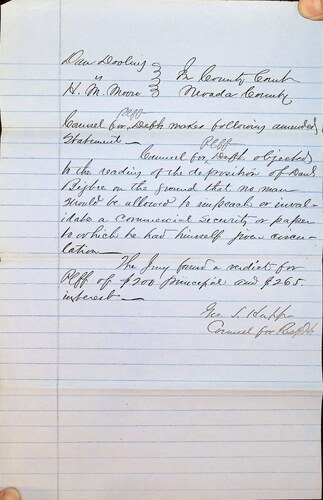 Dan Dooling
vs
H. M. Moore
In County Court
Nevada County
Plff
Counsel for Defts makes following amended
Statement —
Plff
Counsel for Defts objected
to the reading of the deposition of Danl
Rigbee on the ground that no man
should be allowed to impeach or inval-
idate a commercial security or paper
to which he had himself given circu-
lation —
The Jury found a verdict for
Plff of $200 principal and $265
interest —
Geo. S. Hupp
Counsel for